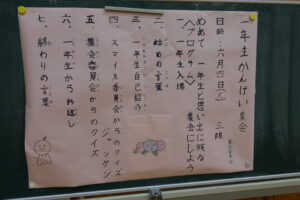 一年生かんげい集会
日時・六月四日(火) 三限
めあて 一年生と思い出に残る
集会にしよう
〈プログラム〉
一、一年生入場
二、始めの言葉
三、一年生自己紹介
四、スマイル委員会からのクイズ
ジャンケン
五、集会委員会からのクイズ
六、一年生からお返し
七、終わりの言葉